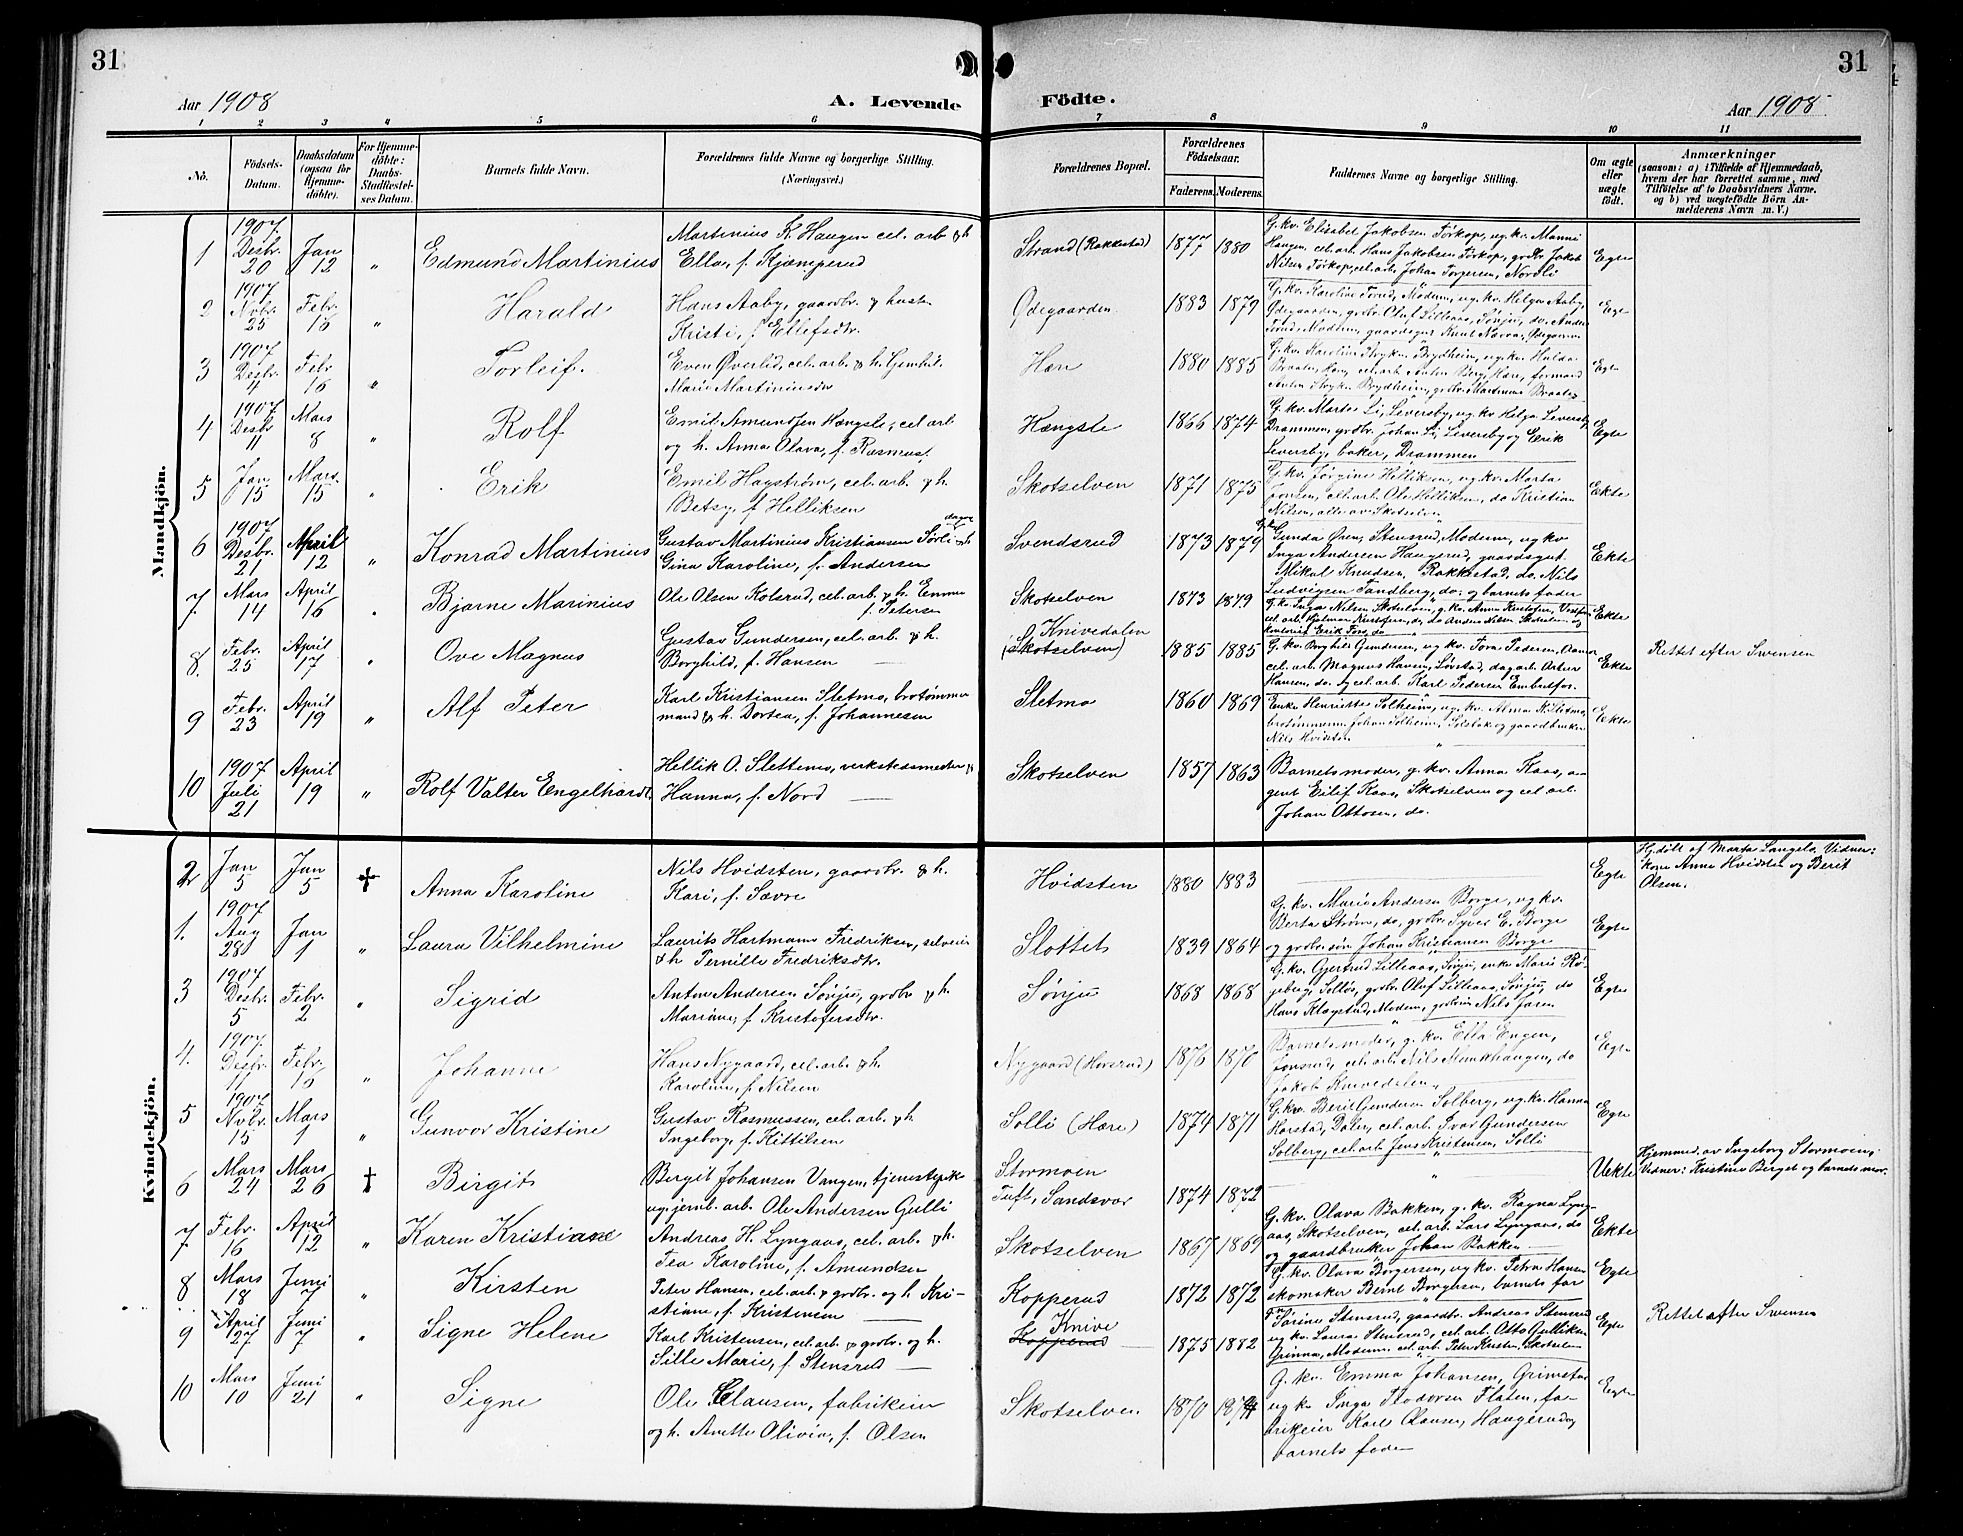 31
31
Aar 1908
A. Levende
Födte.
Aar 1908
1 2 3 4 5 6 7 8 9 10 11
No.
Födsels-Datum.
Daabsdatum (ogsaa for Hjemme-döbte).
For Hjemme-döbte: Daabs-Stadfæstel-ses Datum.
Barnets fulde Navn.
Forældrenes fulde Navne og borgerlige Stilling.
(Næringsvei.)
Forældrenes Bopæl.
Forældrenes Födselsaar.
Faderens. Moderens.
Faddernes Navne og borgerlige Stilling.
Om ægte eller uægte födt.
Anmærkninger
(saasom: a) i Tilfælde af Hjemmedaab,
hvem der har forrettet samme, med
Tilföielse af to Daabsvidners Navne,
og b) ved uægtefödte Börn An-
melderens Navn m. V.)
Mandkjön.
1 1907 Desbr. 20 Jan 12 " Edmund Martinius
Martinius K. Haugen cel. arb. & h
Ella, f. Kjæmperud
Strand (Rakkestad) 1877 1880
G. kv. Elisabet Jakobsen Torkop, ug. kv. Manni
Haugen, cel. arb. Hans Jakobsen Torkop, grdbr Jakob
Nilsen Torkop, cel. arb. Johan Torgersen, Nordli
Egte
2 1907 Novbr. 25 Febr. 16 " Harald
Hans Aaby, gaardbr. & hustr.
Kristi, f. Ellefsdtr.
Ødegaarden 1883 1879
G. kv. Karoline Torud, Modum, ug. kv. Helga Aaby,
Ødegaarden, grdbr. Oluf Lilleaas, Sønju, do. Anders
Torud, Modum, gaardsgut Knut Narvaa, Ødegaarden
Egte
3 1907 Desbr. 11 Febr 16 " Torleif.
Even Øverlid, cel. arb. & h. Gunhild
Marie Martiniusdtr
Hæn 1880 1885
G. kv. Karoline Stryken Brydheim, ug. kv. Hulda
Braaten, Hæn, cel. arb. Anton Berg, Hære, formand
Anton Stryken Brydheim, grdbr. Martinius Braaten
Egte
4 1907 Desbr 11 Mars 8 " Rolf
Emil Amundsen Hængsle, cel. arb
og h. Anna Olava, f. Rasmus.
Hængsle 1866 1874
G. kv. Marte Li, Leversby, ug. kv Helga Leversby
Drammen, grdbr. Johan Li, Leversby og Erik
Leversby, baker, Drammen
Egte
5 Jan 15 Mars 15 " Erik
Emil Hagstrøm, cel. arb. & h.
Betsy, f Helliksen
Skotselven 1871 1875
G. kv. Jørgine Helliksen, ug. kv. Marta
Jonsen, cel. arb. Ole Helliksen, do Kristian
Nilsen, alle av Skotselven
Ekte
6 1907 Desbr. 21 April 12 " Konrad Martinius
Gustav Martinius Kristiansen Sørli dagar & h
Gina Karoline, f. Andersen
Svendsrud 1873 1879
G. kv Gunda Øren, Stensrud, Modum, ug. kv
Inga Andersen Haugerud, gaardsgut
Mikal Knudsen, Rakkestad, do. Nils
Ludvigsen Tandberg, do. og barnets fader
Ekte
7. Mars 14 April 16 " Bjarne Marinius
Ole Olsen Kolsrud, cel. arb. & h. Emma
f. Petersen
Skotselven 1873 1879
G. kv Inga Nilsen Skotselven, g. kv. Anna Kristofsen, Vestfossen
cel. arb. Hjalmar Kristofersen, do, do Anders Nilsen Skotselven og
kontorist Erik Foss, do
Ekte
8. Febr. 25 April 17 " Ove Magnus
Gustav Gundersen, cel. arb. & h.
Borghild, f. Hansen
Knivedalen
(Skotselven) 1885 1885
G. kv. Borghild Gundersen, ug kv. Tora Pedersen, Aamot
cel. arb. Magnus Hansen, Lørstad, dag. arb Anton
Hansen, do. og cel. arb. Karl Pedersen Embretfos.
Ekte
Rettet efter Svensen
9 Febr. 23 April 19 " Alf Peter
Karl Kristiansen Sletmo, brotømmer
mand & h. Dortea, f. Johannesen
Sletmo 1860 1869
Enke Henriette Solheim, ug. kv. Alma K. Sletmo,
brotømmerm. Johan Solheim, Selslak og gaardbruker
Nils Hvidsten
Ekte
10 1907 Juli 21 April 19 " Rolf Valter Engelhardt,
Hellik O. Slettemo, verkstedsmester &
Hanna, f. Nord
Skotselven 1857 1863
Barnets moder, g. kv. Anna Kaas, a-
gent Eilif Kaas, Skotselven og cel. arb.
Johan Ottosen, do.
Kvindekjön.
2 Jan 5 Jan 5 † Anna Karoline
Nils Hvidsten, gaardbr. & h.
Kari, f. Sævre
Hvidsten 1880 1883
Egte
Hj. døbt af Marta Langelo, Vidner:
Kone Anne Hvidsten og Berit
Olsen.
1. 1907 Aug 28 Jan 1 " Laura Vilhelmine
Laurits Hartmann Fredriksen, selveier
& h Pernille Fredriksdtr.
Slottet 1839 1864
G. kv. Marie Andersen Borge, ug kv.
Berta Strøm, do, grdbr. Syver E. Borge
og grdbr. søn Johan Kristiansen Borge
Egte
3 1907 Desbr. 5 Febr. 2 " Sigrid
Anton Andersen Sønju, grdbr & h.
Mariane, f Kristofersdtr.
Sønju 1868 1868
G. kv. Gjertrud Lilleaas, Sønju, enke Marie Rø-
geberg, Solløs, grdbr. Oluf Lilleaas, Sønju, do
Hans Klogstad, Modum, grdbrsøn Nils Jaren
Egte
4. 1907. Desbr. 11 Febr. 16 " Johanne
Hans Nygaard, cel. arb. & h
Karoline, f. Nilsen
Nygaard (Horsrud) 1876 1870
Barnets moder, g. kv. Ella Engen,
Jonsrud, cel. arb. Nils Munkhaugen, do
Jakob Knivedalen
Egte
5 1907 Nvbr. 15 Mars 1 " Gunvor Kristine
Gustav Rasmussen, cel. arb. & h.
Ingeborg, f. Kittilsen
Solli (Hære) 1874 1871
G. kv. Berit Gundersen Solberg, ug. kv. Hanna
Horstad, Dalen, cel. arb. Ivar Gundersen
Solberg, cel. arb. Jens Kristensen, Solli
Egte
6 Mars 24 Mars 26 † Birgit
Bergit Johansen Vangen, tjenestepike
ug. jernb. arb. Ole Andersen Gulli
Stormoen
Tuft, Sandsvær 1874 1872
Uekte
Hjemmd. av Ingeborg Stormoen,
Vidner: Kristine Berget og barnets mor.
7. Febr. 16 April 12 " Karen Kristiane
Andreas H. Lyngaas, cel. arb. & h.
Tea Karoline, f. Amundsen
Skotselven 1867 1869
G. kv. Olava Bakken, g. kv. Ragna Lyng-
aas, Skotselven, cel. arb. Lars Lyngaas, do
og gaardbruker Johan Bakken
Ekte
8 Mars 18 Juni 7 " Kirsten
Peter Hansen, cel. arb. & grdbr. og h. Kri-
stiane, f. Kristensen
Kopperud 1872 1872
G. kv. Olava Børgersen, ug kv. Petra Hansen
skomaker Bernt Børgersen, barnets far
Egte
9 April 27 Juni 7 " Signe Helene
Karl Kristensen, cel. arb. & grdbr. og h.
Sille Marie, f. Stensrud
Knive
Kopperud 1875 1882
Fru Sørine Stensrud, gaardbr. Andreas Stensrud
ug kv. Laura Stensrud, cel. arb. Otto Gulliksen
Grinna, Modum, cel. arb. Peter Kristen. Skotselven
Egte
Rettet efter Svensen
10 Mars 10 Juni 21 " Signe
Ole Clausen, fabrikeier
og h. Anette Olivia, f. Olsen
Skotselven 1870 1874
G. kv. Emma Johansen, Grimstad
ug k. Inga Teodorsen Flaten, fa-
brikeier Karl Clausen, Haugerud og
barnets fader
Egte